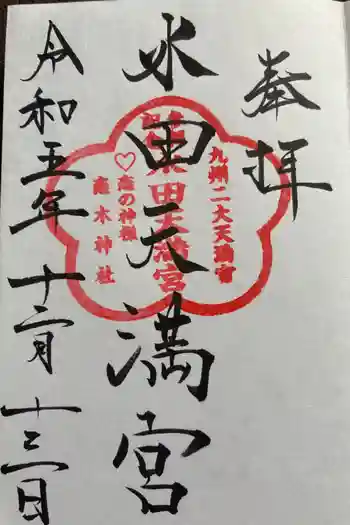 奉拝
水田天満宮
令和五年十二月十三日
九州二大天満宮
水田天満宮
♡恋の神様
恋木神社